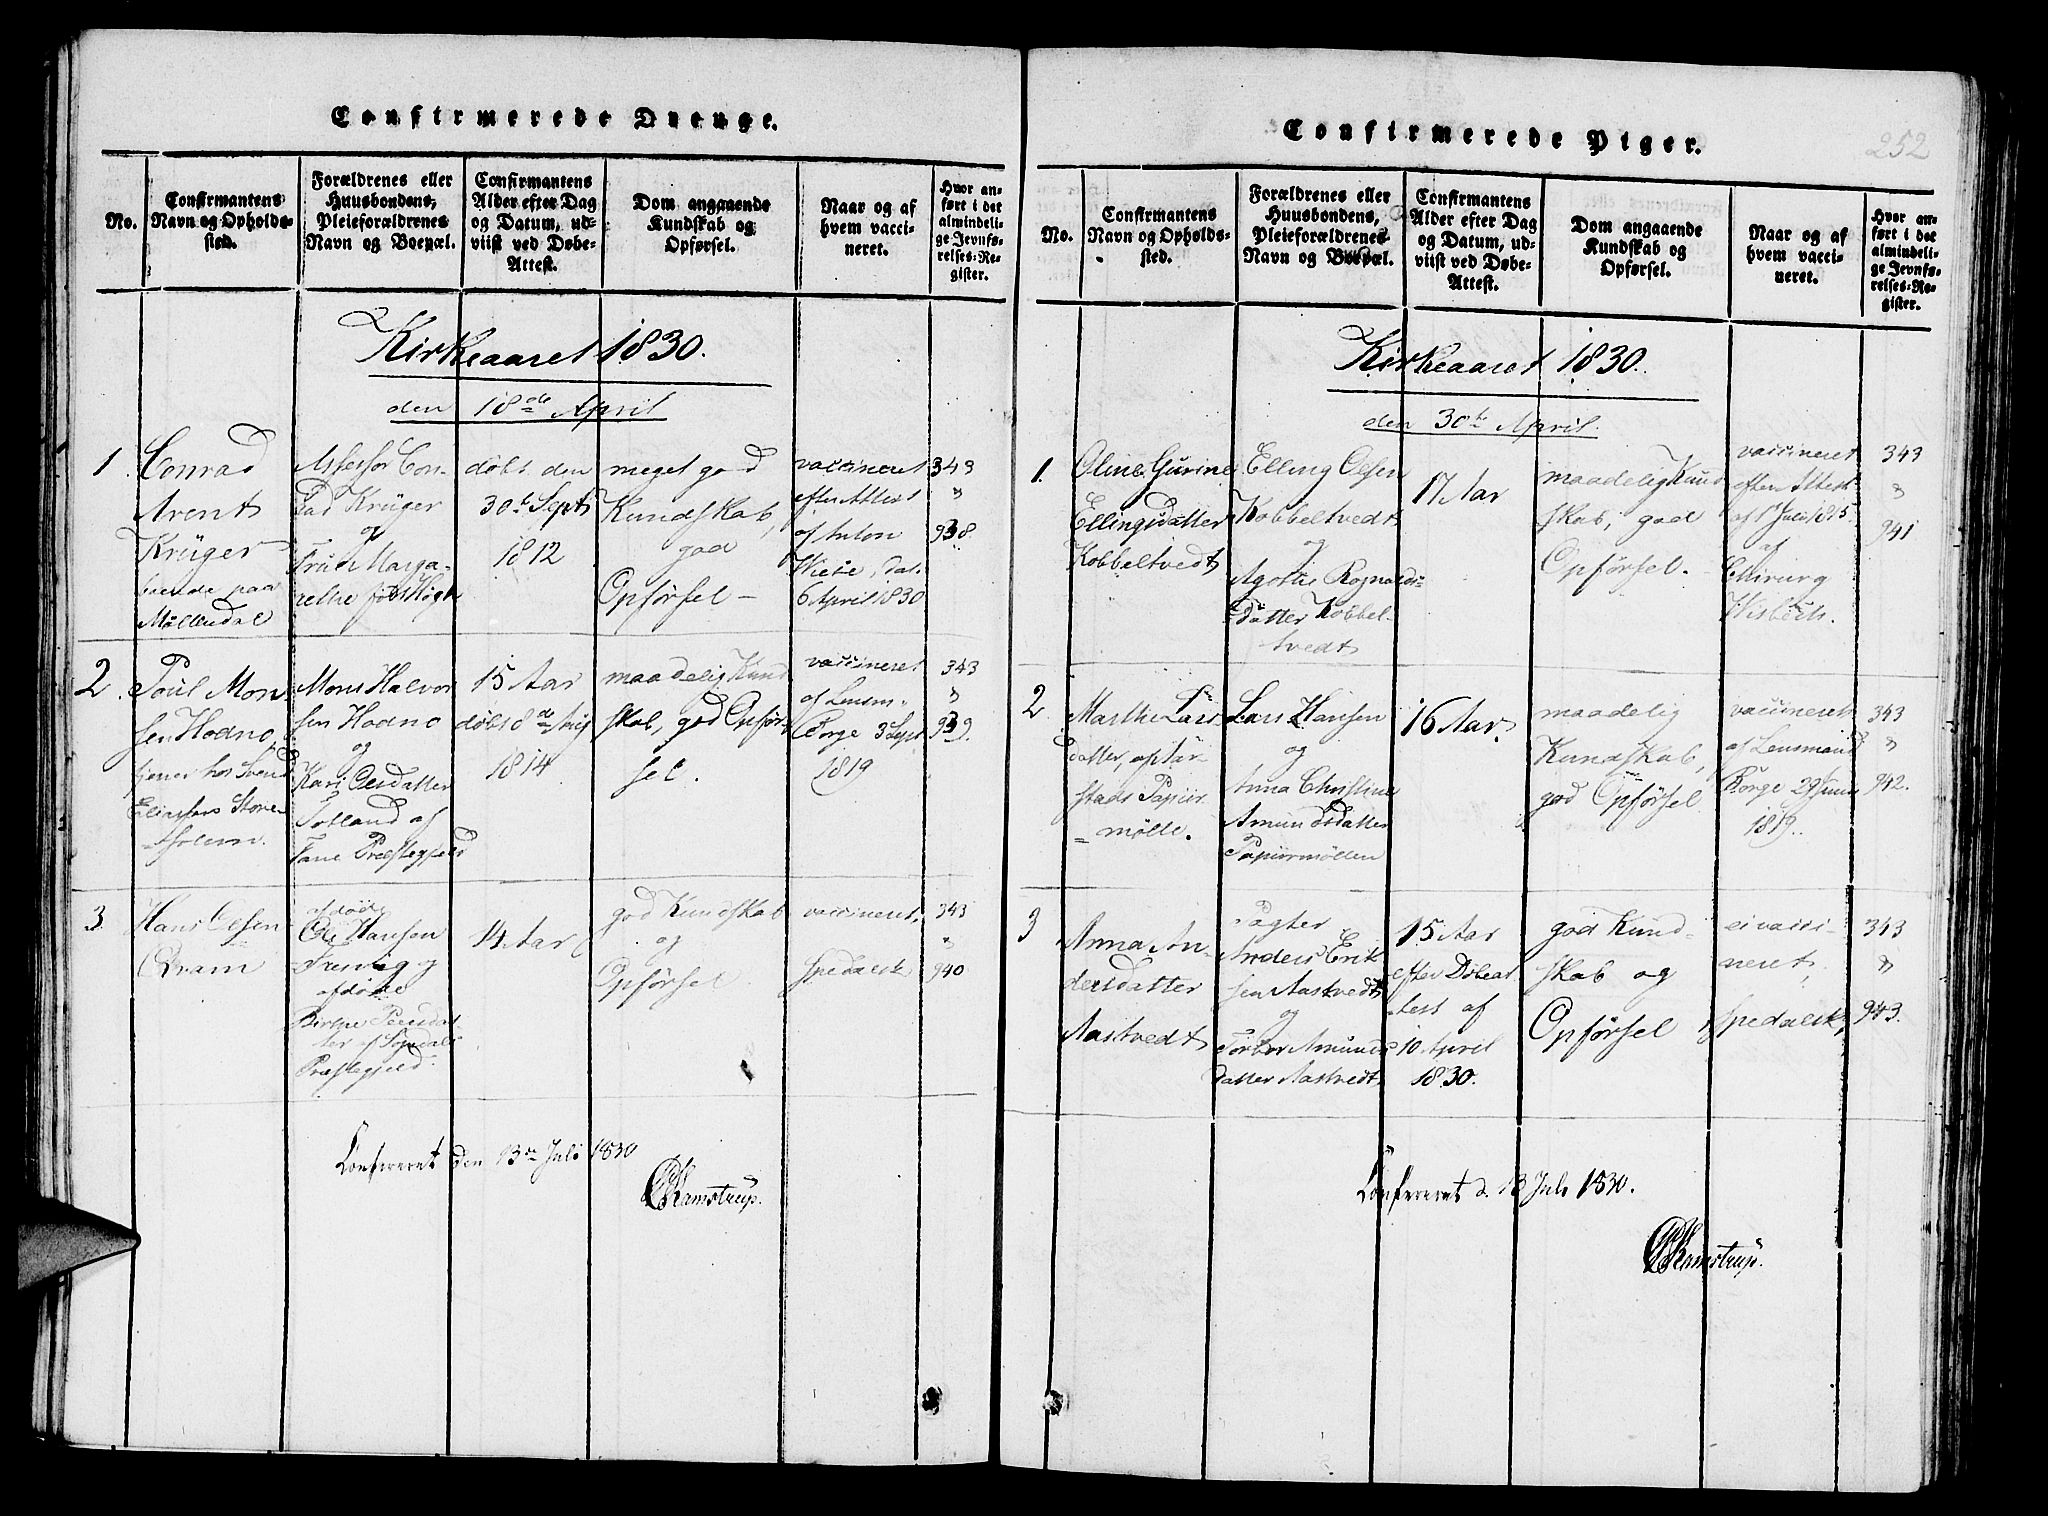 Confirmerede Drenge.
No.
Confirmantens
Navn og Opholds-
sted.
Forældrenes eller
Huusbondens,
Pleieforældrenes
Navn og Boepæl.
Confirmantens
Alder efter Dag
og Datum, ud-
viist ved Døbe-
Attest.
Dom angaaende
Kundskab og
Opførsel.
Naar og af
hvem vacci-
neret.
Hvor an-
ført i det
almindeli-
ge Jevnfø-
relses-Re-
gister.
Kirkeaaret 1830.
den 18de April
1.
Conrad
Arent
Krüger
boende paa
Møllendal
Assessor Con-
rad Krüger
og
Frue Marga-
rethe født
døbt den
30te Septr
1812
meget god
Kundskab,
god
Opførsel -
vaccineret
efter Attest
af Anton
Wiese, dat.
6 April 1830
343
"
938.
2.
Poul Mon
sen Hodno
tjener hos Svend
Eliassen Store-
Mons Halvor
sen Hodno
og
Kari Olesdatter
Totland af
Fane Præstegjeld
15 Aar
døbt 8de Aug
1814
maadelig Kund
skab, god Opfør-
sel.
vaccineret
af Lensm:
Borge 3 Sept
1819
343
"
939.
3.
Hans Olsen
Bram
afdøde
Ole Hansen
og
afdøde
Birthe Peersdat-
ter af Sogndals
Præstegjeld.
14 Aar
god Kundskab
og
Opførsel.
vaccineret,
spedalsk
343
"
940
Confereret den 13de Juli 1830
Ramstrup.
252
Confirmerede Piger.
No.
Confirmantens
Navn og Opholds-
sted.
Forældrenes eller
Huusbondens,
Pleieforældrenes
Navn og Boepæl.
Confirmantens
Alder efter Dag
og Datum, ud-
viist ved Døbe-
Attest.
Dom angaaende
Kundskab og
Opførsel.
Naar og af
hvem vacci-
neret.
Hvor an-
ført i det
almindeli-
ge Jevnfø-
relses-Re-
gister.
Kirkeaaret 1830.
den 30te April.
1.
Oline Gurine
Ellingsdatter
Kobbeltvedt
Elling Olsen
Kobbeltvedt
og
Agothe Rognalds-
datter Kobbel-
tvedt
17 Aar
maadelig Kund
skab, god
Opførsel.
vaccineret
efter Attest
af 1 Juli 1815
af
Chirurg
Wisbech.
343
"
941
2
Marthe Lars
datter,
stads Papiir
mølle.
Lars Hansen
og
Anna Christine
Amundsdatter
Papiirmøllen
16 Aar.
maadelig
Kundskab,
god Opførsel
vaccineret
af Lensmand
Borge 29 Juni
1819.
343
"
942.
3
Anna An-
dersdatter
Aastvedt
Pagter
Anders Erik
sen Aastvedt
og
Torbor Amunds
datter Aastvedt
15 Aar
efter Døbeat
test af
10 April
1830.
god Kund-
skab og
Opførsel
ei vacci-
neret,
spedalsk,
343
"
943.
Confereret d. 13 Juli 1830.
Ramstrup.